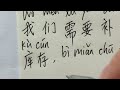 我们需要补
kù cún  bì miǎn chū
库存,